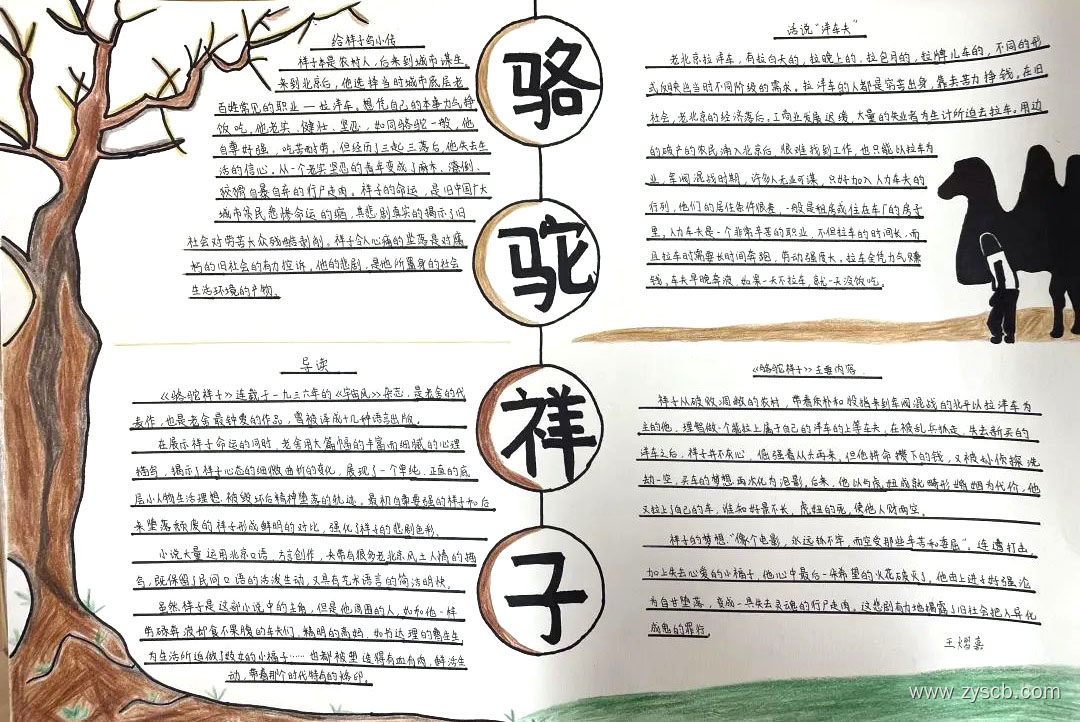 给祥子写小传
祥子本是农村人,后来到城市谋生。
来到北京后,他选择当时城市底层老
百姓常见的职业——拉洋车。想凭自己的本事力气挣
饭吃,他老实、健壮、坚忍,如同骆驼一般,他
自尊好强,吃苦耐劳,但经历了三起三落后,他失去生
活的信心。从一个老实坚忍的青年变成了麻木、潦倒、
狡猾自暴自弃的行尸走肉。祥子的命运,是旧中国广大
城市贫民悲惨命运的缩,其悲剧真实的揭示了旧
社会对劳苦大众残酷剥削。祥子令人心痛的坠落是对腐
朽的旧社会的有力控诉,他的悲剧,是他所置身的社会
生活环境的产物。
骆
驼
祥
子
话说“洋车夫”
老北京拉洋车,有拉白天的,拉晚上的,拉包月的,拉牌儿车的,不同的形
式反映出当时不同阶级的需求。拉洋车的人都是穷苦出身,靠卖苦力挣钱,在旧
社会,老北京的经济落后,工商业发展迟缓,大量的失业者为生计所迫去拉车。周边
的破产的农民涌入北京后,很难找到工作,也只能以拉车为
业,军阀混战时期,许多人无业可谋,只好加入人力车夫的
行列,他们的居住条件很差,一般是租房或住在车厂的房子
里,人力车夫是一个非常辛苦的职业,不但拉车的时间长,而
且拉车时需要长时间奔跑,劳动强度大,拉车全凭力气赚
钱,车夫早晚奔波,如果一天不拉车,就一天没饭吃。
导读
《骆驼祥子》连载于一九三六年的《宇宙风》杂志,是老舍的代
表作,也是老舍最钟爱的作品,曾被译成十几种语言出版。
在展示祥子命运的同时,老舍用大篇幅的丰富而细腻的心理
描写,揭示了祥子心态的细微曲折的变化,展现了一个单纯、正直的底
层小人物生活理想被毁坏后精神堕落的轨迹,最初自尊要强的祥子和后
来堕落颓废的祥子形成鲜明的对比,强化了祥子的悲剧色彩。
小说大量运用北京口语、方言创作,夹带有很多老北京风土人情的描
写,既保留了民间口语的活泼生动,又具有艺术语言的简洁明快。
虽然祥子是这部小说中的主角,但是他周围的人,如和他一样
劳碌奔波却食不果腹的车夫们,精明的高妈,知书达理的曹先生,
为生活所迫做了妓女的小福子……也都被塑造得有血有肉,鲜活生
动,带着那个时代特有的烙印。
《骆驼祥子》主要内容
祥子从破败凋敝的农村,带着质朴和强悍来到军阀混战的北平以拉洋车为
主的他,理想做一个能拉上属于自己的洋车的上等车夫,在被乱兵抓走,失去新买的
洋车之后,祥子并不灰心,倔强着从头再来,但他拼命攒下的钱,又被孙侦探洗
劫一空,买车的梦想再次化为泡影,后来,他以与虎妞成就畸形婚姻为代价,他
又拉上了自己的车,谁知好景不长,虎妞的死,使他人财两空。
祥子的梦想,“像个电影,永远抓不牢,而空受那些辛苦和委屈”。连遭打击,
加上失去心爱的小福子,他心中最后一朵希望的火花破灭了,他由上进好强沦
为自甘堕落,变成一具失去灵魂的行尸走肉,这悲剧有力地揭露了旧社会把人异化
成鬼的罪行。
王熠嘉
www.zyscb.com